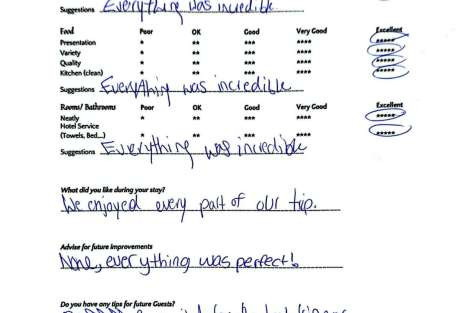 Suggestions Everything was incredible
Food Poor OK Good Very Good Excellent
Presentation * ** *** **** *****
Variety * ** *** **** *****
Quality * ** *** **** *****
Kitchen (clean) * ** *** **** *****
Suggestions Everything was incredible
Rooms/ Bathrooms Poor OK Good Very Good Excellent
Neatly * ** *** **** *****
Hotel Service
(Towels, Bed...) * ** *** **** *****
Suggestions Everything was incredible
What did you like during your stay?
We enjoyed every part of our tip.
Advise for future improvements
None, everything was perfect!
Do you have any tips for future Guests?